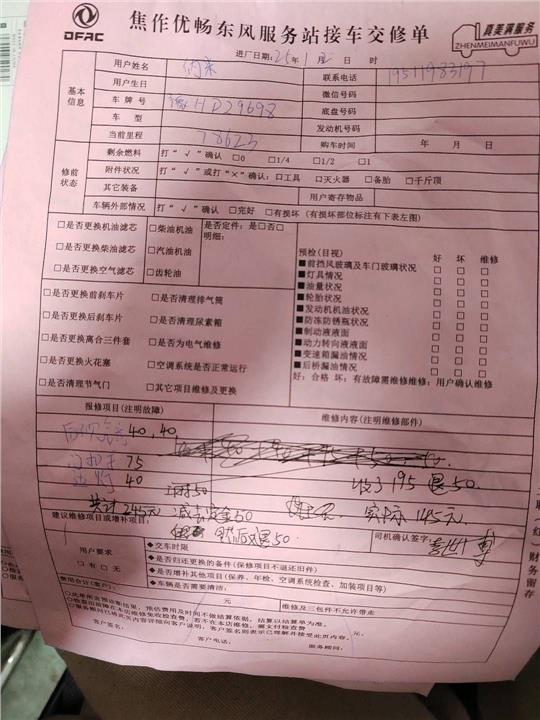 DFAC
焦作优畅东风服务站接车交修单
真美满服务
ZHENMEIMANFUWU
进厂日期：25年 月 日 时
基本信息
用户姓名 联系电话 19511983197
用户生日 微信号码
车牌号 豫HD29698 底盘号码
车型 发动机号码
当前里程 78623 购车时间 年 月 日
修前状态
剩余燃料 打“√”确认 □0 □1/4 □1/2 □1
附件状况 打“√”或打“×”确认：□工具 □灭火器 □备胎 □千斤顶
其它装备 用户寄存物品
车辆外部情况 打“√”确认 □完好 □有损坏（有损坏部位标注有下表左图）
□是否更换机油滤芯 □柴油机油 是否定件：是□否□
□是否更换柴油滤芯 □汽油机油 明细：
□是否更换空气滤芯 □齿轮油
□是否更换前刹车片 □是否清理排气筒
□是否更换后刹车片 □是否清理尿素箱
□是否更换离合三件套 □是否为电气维修
□是否更换火花塞 □空调系统是否正常运行
□是否清理节气门 □其它项目维修及更换
预检（目视） 好 坏 维修
■前挡风玻璃及车门玻璃状况 □ □ □
■灯具情况 □ □ □
■油量状况 □ □ □
■轮胎状况 □ □ □
■发动机机油状况 □ □ □
■防冻防锈瓶状况 □ □ □
■制动液液面 □ □ □
■动力转向液液面 □ □ □
■变速箱漏油情况 □ □ □
■后桥漏油情况 □ □ □
好：合格 坏：有故障需维修维修：用户确认维修
报修项目（注明故障） 维修内容（注明维修部件）
40,40
75
40 工时50 收了195退50.
共计245元 减去定金50 实际 145元
建议维修项目或增补项目：
后退50
司机确认签字：
用户要求
□有 □无
◆交车时限
◆是否归还更换的备件（保修项目不退还旧件）
◆是否增补其他项目（保养、年检、空调系统检查、加装项目等）
◆车辆是否需要清洁：
费用合计（客户）： 元 维修及三包件不允许带走
客户签名： 客户电话： 服务顾问：
财务留存